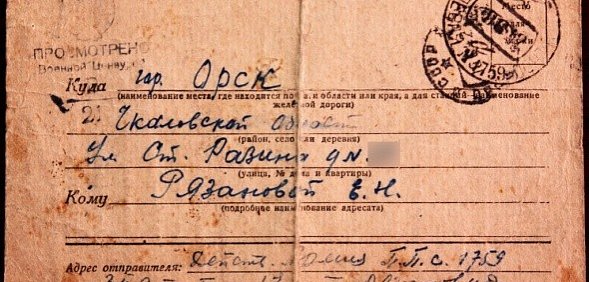 ПРОСМОТРЕНО
Военной Цензу
Место
для
марки
Куда гор. Орск
(наименование места, где находится почта, и области или края, а для станций наименование
железной дороги)
Чкаловской области
(район, село или деревня)
Ул Ст. Разина д №
(улица, № дома и квартиры)
Кому Рязановой Е. Н.
(подробное наименование адресата)
Адрес отправителя: Действ. Армия П.П.С. 1759